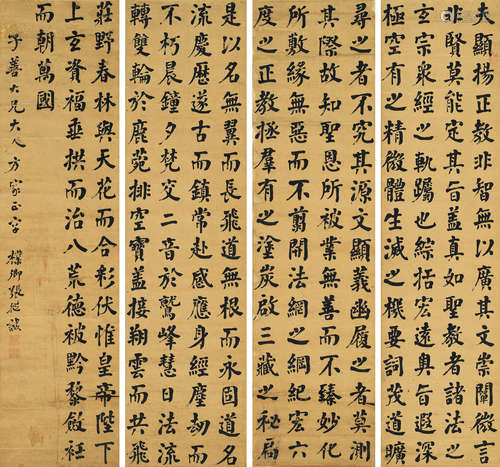 夫顯揚正教非智無以廣其文崇闡微言
非賢莫能定其旨蓋真如聖教者諸法之
玄宗眾經之軌躅也綜括宏遠奧旨遐深
極空有之精微體生滅之機要詞茂道曠
尋之者不究其源文顯義幽履之者莫測
其際故知聖恩所被業無善而不臻妙化
所敷緣無惡而不翦開法網之綱紀宏六
度之正教拯羣有之塗炭啟三藏之秘扃
是以名無翼而長飛道無根而永固道名
流慶歷遂古而鎮常赴感應身經塵劫而
不朽晨鐘夕梵交二音於鷲峰慧日法流
轉雙輪於鹿菀排空寶蓋接翔雲而共飛
莊野春林與天花而合彩伏惟皇帝陛下
上玄資福垂拱而治八荒德被黔黎斂衽
而朝萬國
子善大兄大人方家正字 卿張從